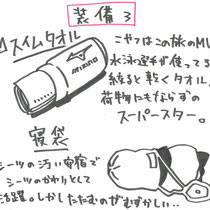 装備3
スイムタオル
こやつはこの旅のMV
水泳選手が使ってる
絞ると乾くタオル。
荷物にもならずの
スーパースター。
MIZUNO
寝袋
シーツの汚い安宿で
シーツのかわりとして
活躍。しかしたたむのがむずかしい…